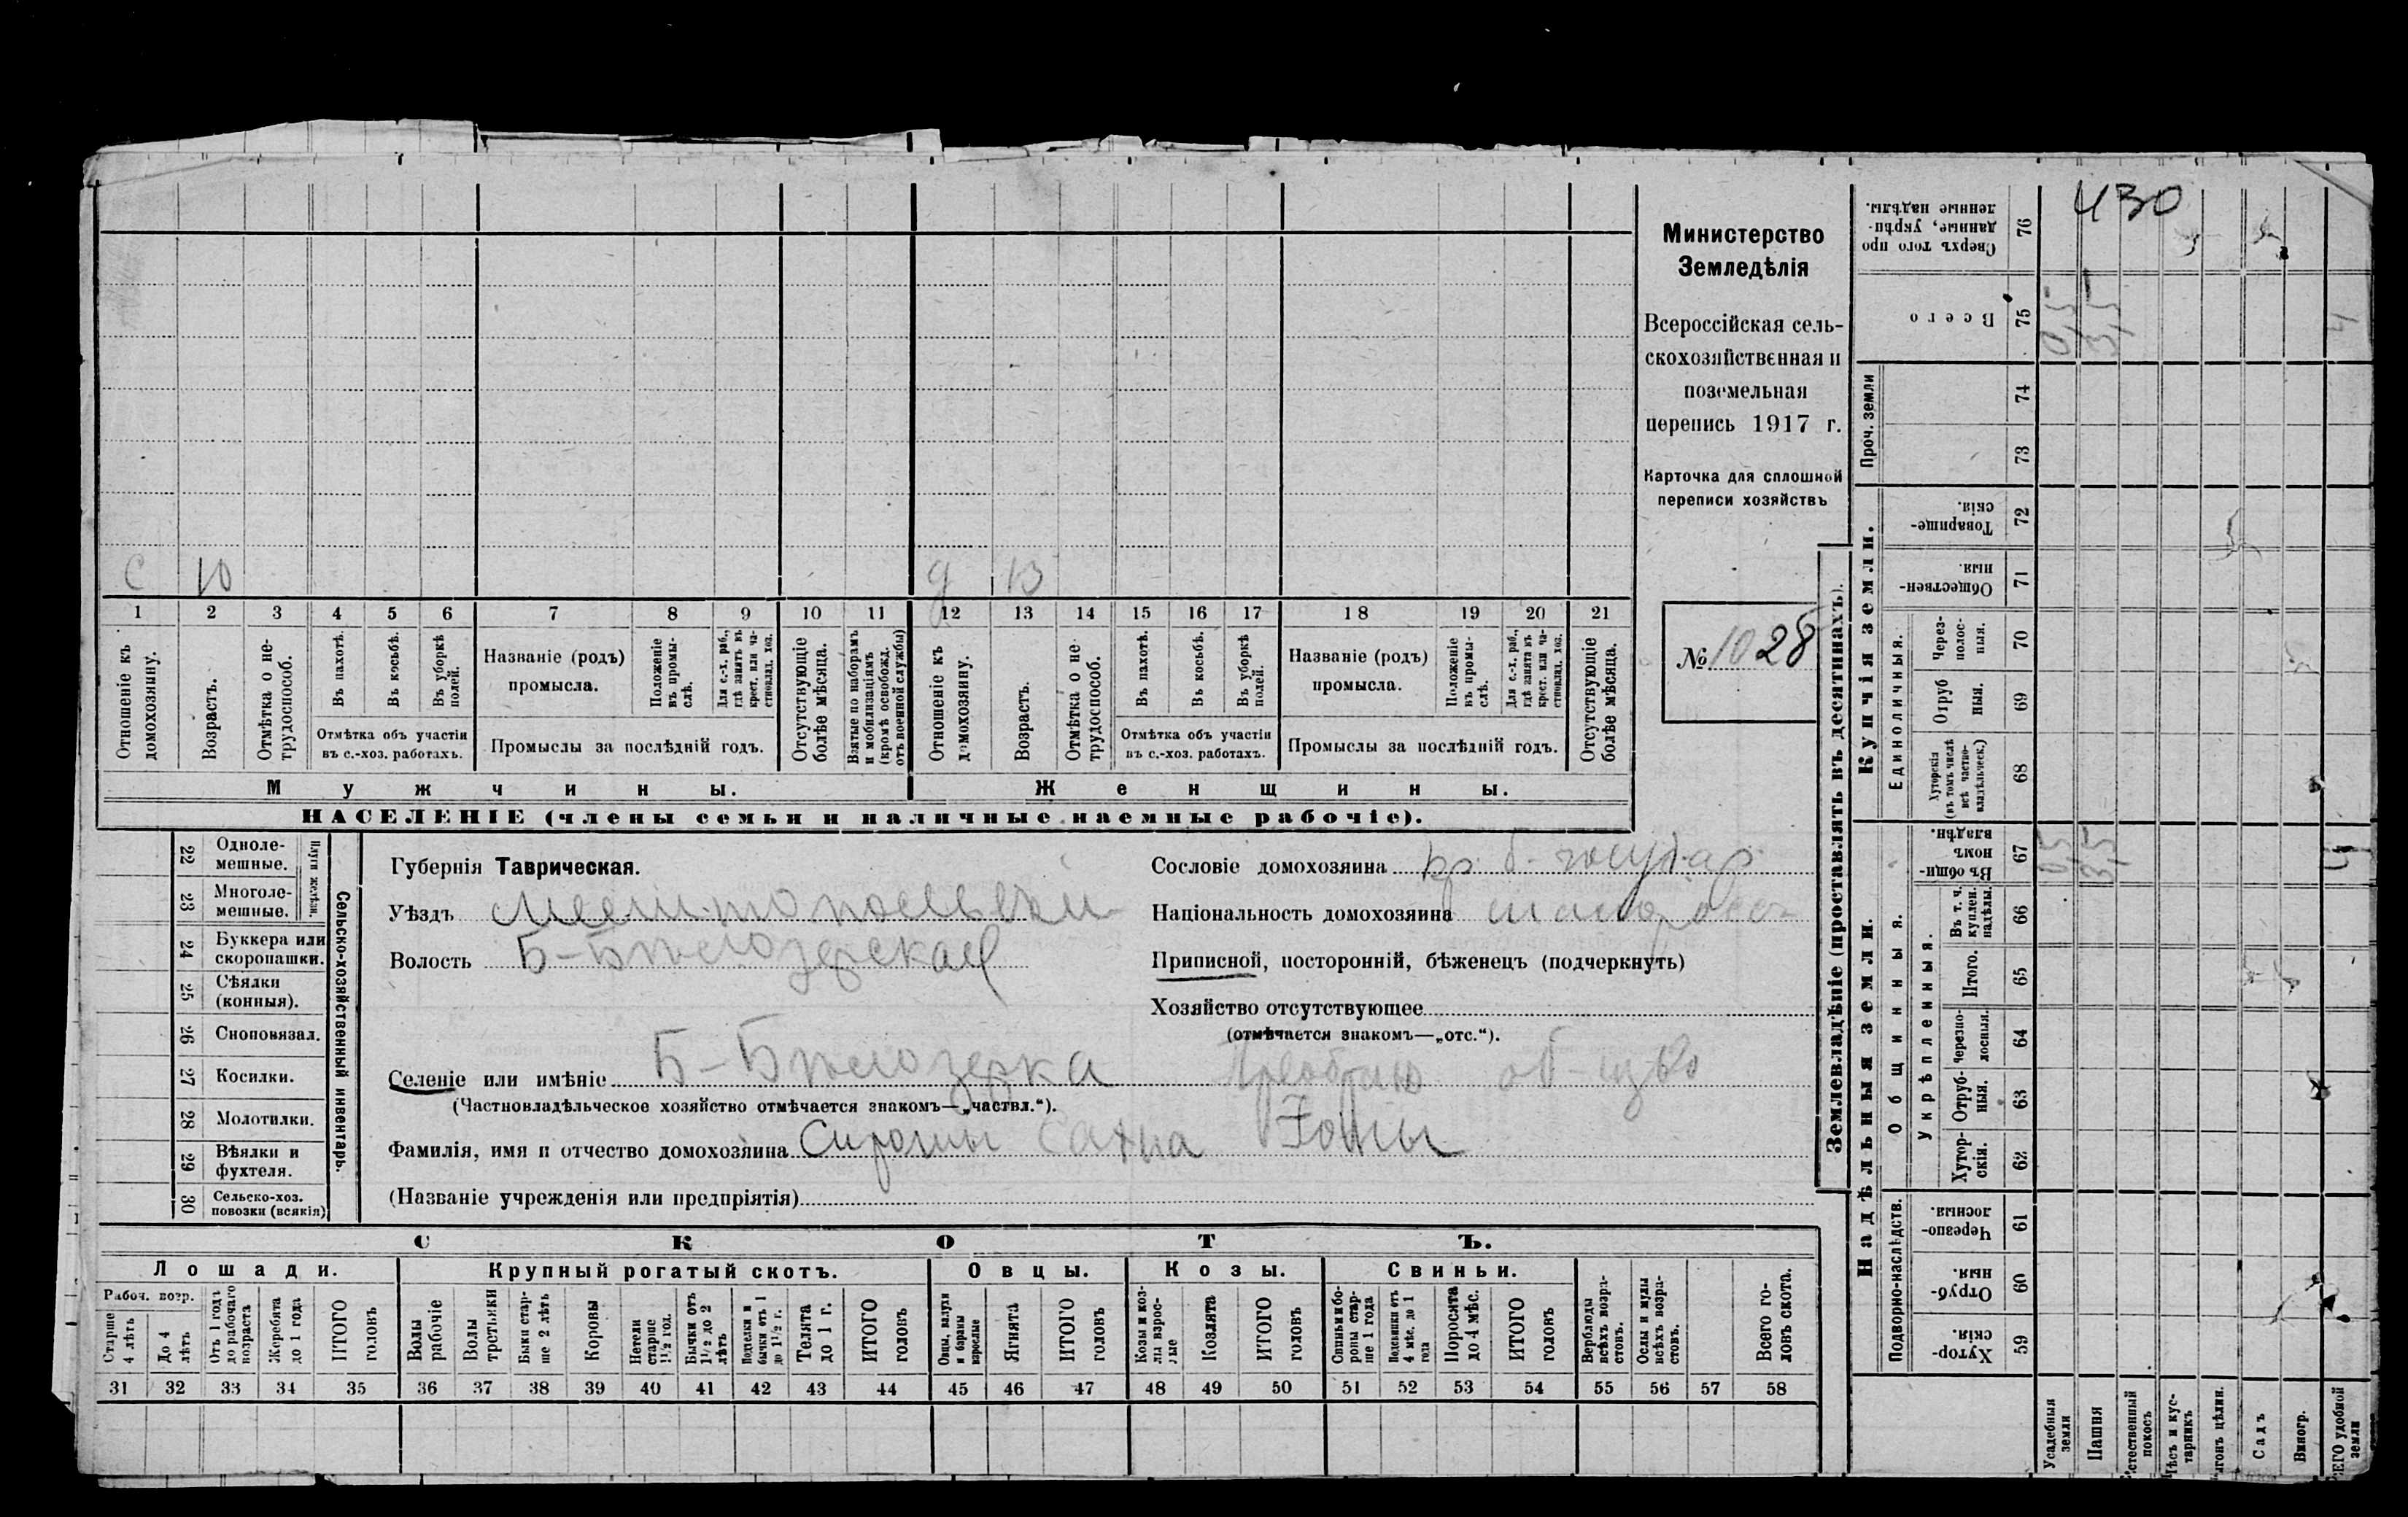 430
Министерство
Земледѣлія
Всероссійская сель-
скохозяйственная и
поземельная
перепись 1917 г.
Карточка для сплошной
переписи хозяйствъ
№ 1028
с 10
д 13
1 2 3 4 5 6 7 8 9 10 11 12 13 14 15 16 17 18 19 20 21
Отношеніе къ домохозяину.
Возрастъ.
Отмѣтка о не-трудоспособ.
Въ пахотѣ.
Въ косьбѣ.
Въ уборкѣ полей.
Отмѣтка объ участіи
въ с.-хоз. работахъ.
Названіе (родъ)
промысла.
Положеніе въ промы-слѣ.
Для с.-х. раб., гдѣ занятъ въ крест. или ча-стновлад. хоз.
Промыслы за послѣдній годъ.
Отсутствующіе болѣе мѣсяца.
Взятые по наборамъ и мобилизаціямъ (кромѣ освобожд. отъ военной службы)
Отношеніе къ домохозяину.
Возрастъ.
Отмѣтка о не-трудоспособ.
Въ пахотѣ.
Въ косьбѣ.
Въ уборкѣ полей.
Отмѣтка объ участіи
въ с.-хоз. работахъ.
Названіе (родъ)
промысла.
Положеніе въ промы-слѣ.
Для с.-х. раб., гдѣ занята въ крест. или ча-стновлад. хоз.
Промыслы за послѣдній годъ.
Отсутствующіе болѣе мѣсяца.
Мужчины.
Женщины.
НАСЕЛЕНІЕ (члены семьи и наличные наемные рабочіе).
Сельско-хозяйственный инвентарь.
Плуги желѣзн.
22 Одноле-мешные.
23 Многоле-мешные.
24 Буккера или скоропашки.
25 Сѣялки (конныя).
26 Сноповязал.
27 Косилки.
28 Молотилки.
29 Вѣялки и фухтеля.
30 Сельско-хоз. повозки (всякія)
Губернія Таврическая.
Уѣздъ Мелитопольскій
Волость Б-Бѣлозерская
Сословіе домохозяина кр. б. госуд-ар
Національность домохозяина малоросс
Приписной, посторонній, бѣженецъ (подчеркнуть)
Хозяйство отсутствующее
(отмѣчается знакомъ—„отс.“).
Селеніе или имѣніе Б-Бѣлозерка об-щво
(Частновладѣльческое хозяйство отмѣчается знакомъ—„частвл.“).
Фамилія, имя и отчество домохозяина Сироты
(Названіе учрежденія или предпріятія)
СКОТЪ.
Лошади. Крупный рогатый скотъ. Овцы. Козы. Свиньи.
Рабоч. возр.
Старше 4 лѣтъ
До 4 лѣтъ
Отъ 1 года до рабочаго возраста
Жеребята до 1 года
ИТОГО головъ
Волы рабочіе
Волы третьяки
Быки стар-ше 2 лѣтъ
Коровы
Нетели старше 1½ год.
Бычки отъ 1½ до 2 лѣтъ
Подтелки и бычки отъ 1 до 1½ г.
Телята до 1 г.
ИТОГО головъ
Овцы, валухи и бараны взрослые
Ягнята
ИТОГО головъ
Козы и коз-лы взрос-лые
Козлята
ИТОГО головъ
Свиньи и бо-ровы стар-ше 1 года
Подсвинки отъ 4 мѣс. до 1 года
Поросята до 4 мѣс.
ИТОГО головъ
Верблюды всѣхъ возра-стовъ.
Ослы и мулы всѣхъ возра-стовъ.
Всего го-ловъ скота.
31 32 33 34 35 36 37 38 39 40 41 42 43 44 45 46 47 48 49 50 51 52 53 54 55 56 57 58
Землевладѣніе (проставлять въ десятинахъ).
Надѣльныя земли.
Купчія земли.
Проч. земли
Подворно-наслѣдств.
Общинныя.
Укрѣпленныя.
Единоличныя.
59 Хутор-скія.
60 Отруб-ныя.
61 Черезпо-лосныя.
62 Хутор-скія.
63 Отруб-ныя.
64 Черезпо-лосныя.
65 Итого.
66 Въ т. ч. куплен. надѣлы.
67 Въ общи-номъ владѣн. 0,5 3,5 4
68 Хуторскія (въ томъ числѣ всѣ частно-владѣльческ.)
69 Отруб ныя.
70 Через-полос-ныя.
71 Обществен-ныя.
72 Товарище-скія.
73
74
75 Всего 0,5 3,5 4
76 Сверхъ того про данные, укрѣп-ленные надѣлы.
Усадебныя земли
Пашня
Естественный покосъ
Лѣсъ и кус-тарникъ
Выгонъ цѣлин.
Садъ
Виногр.
ВСЕГО удобной земли